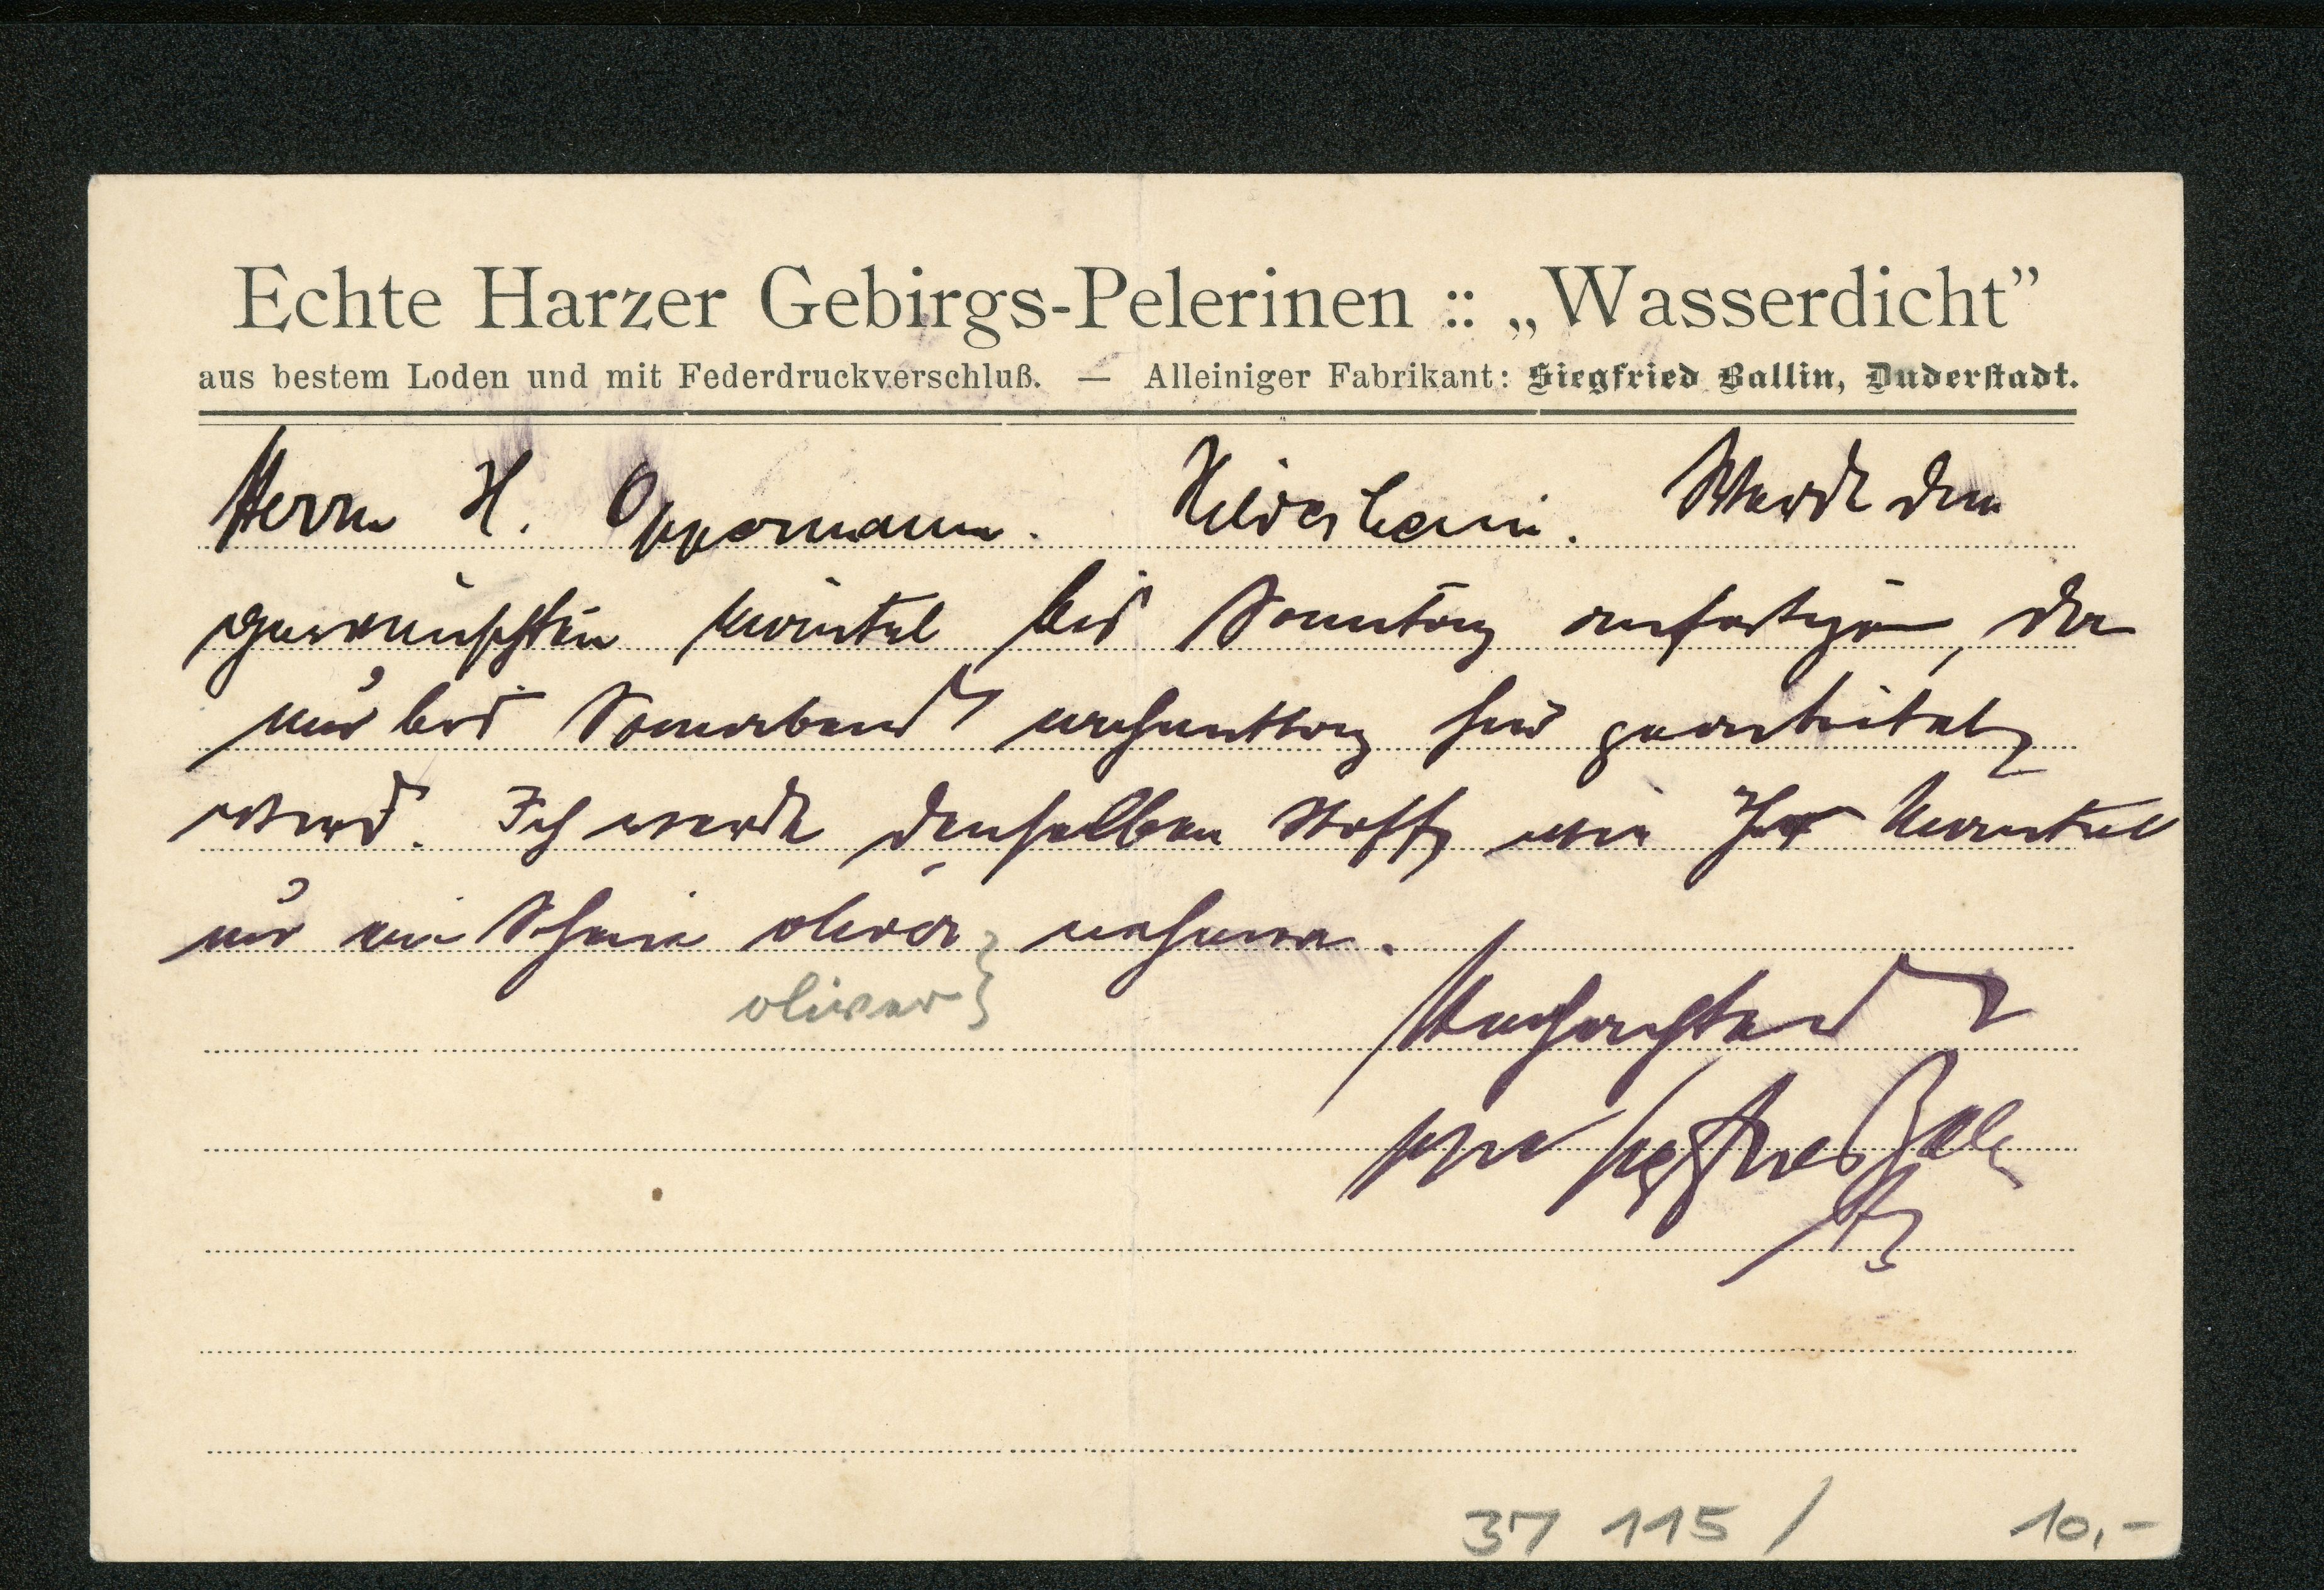 Echte Harzer Gebirgs-Pelerinen :: „Wasserdicht”
aus bestem Loden und mit Federdruckverschluß. — Alleiniger Fabrikant: Siegfried Ballin, Duderstadt.
Herrn H. Oppermann. Hildesheim. Werde den
gewünschten Mantel bis Sonntag anfertigen, da
nur bis Sonnabend Nachmittag hier gearbeitet
wird. Ich werde denselben Stoff wie Ihr Mantel
nur ein oliver nehmen.
oliver }
Hochachtend
Siegfried Ballin
37 115 / 10,-